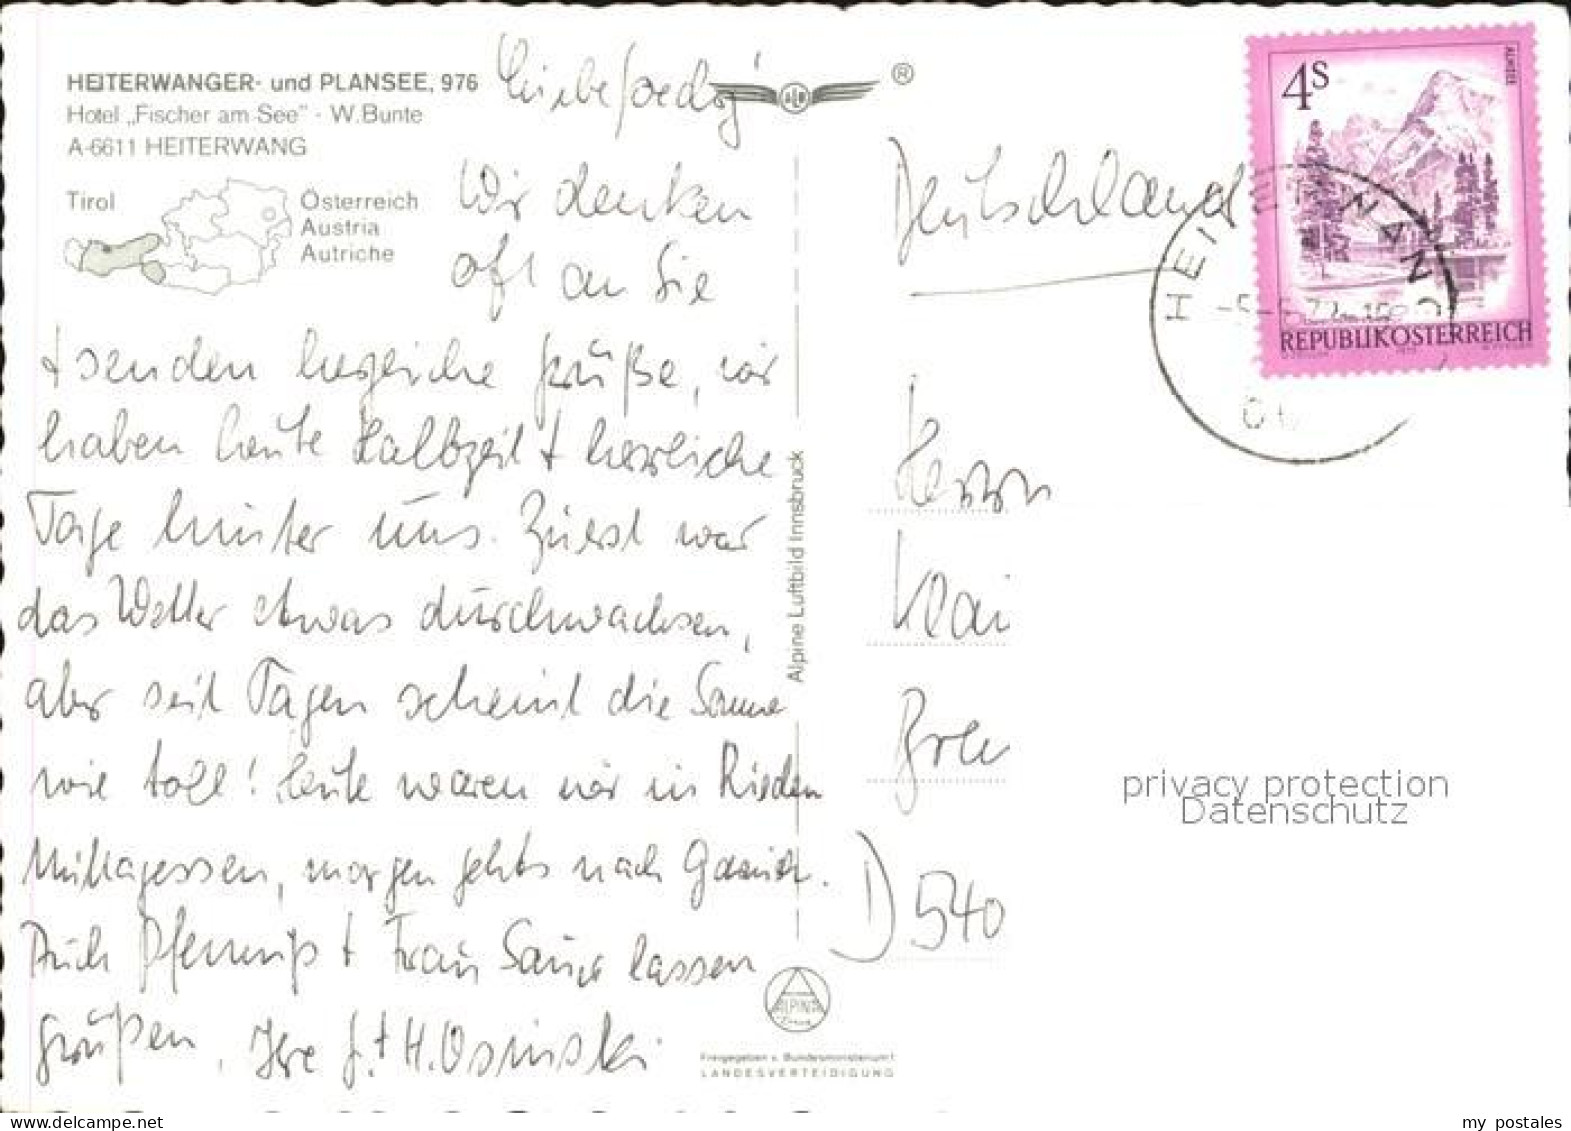 HEITERWANGER- und PLANSEE, 976
Hotel „Fischer am See" - W. Bunte
A-6611 HEITERWANG
Tirol
Österreich
Austria
Autriche
®
Wir denken
oft an Sie
+ senden herzliche Grüße, wir
haben heute Halbzeit + herrliche
Tage hinter uns. Zuerst war
das Wetter etwas durchwachsen,
aber seit Tagen scheint die Sonne
wie toll! Heute waren wir in Rieden
Mittagessen, morgen gehts nach
Auch + Frau lassen
grüßen, Ihre H. Osinski
Alpine Luftbild Innsbruck
ALPINA
Freigegeben v. Bundesministerium f.
LANDESVERTEIDIGUNG
4S
ALMSEE
REPUBLIK ÖSTERREICH
HEITERWANG
Deutschland
Herrn
Klai
D 540
privacy protection
Datenschutz
www.delcampe.net
my_postales